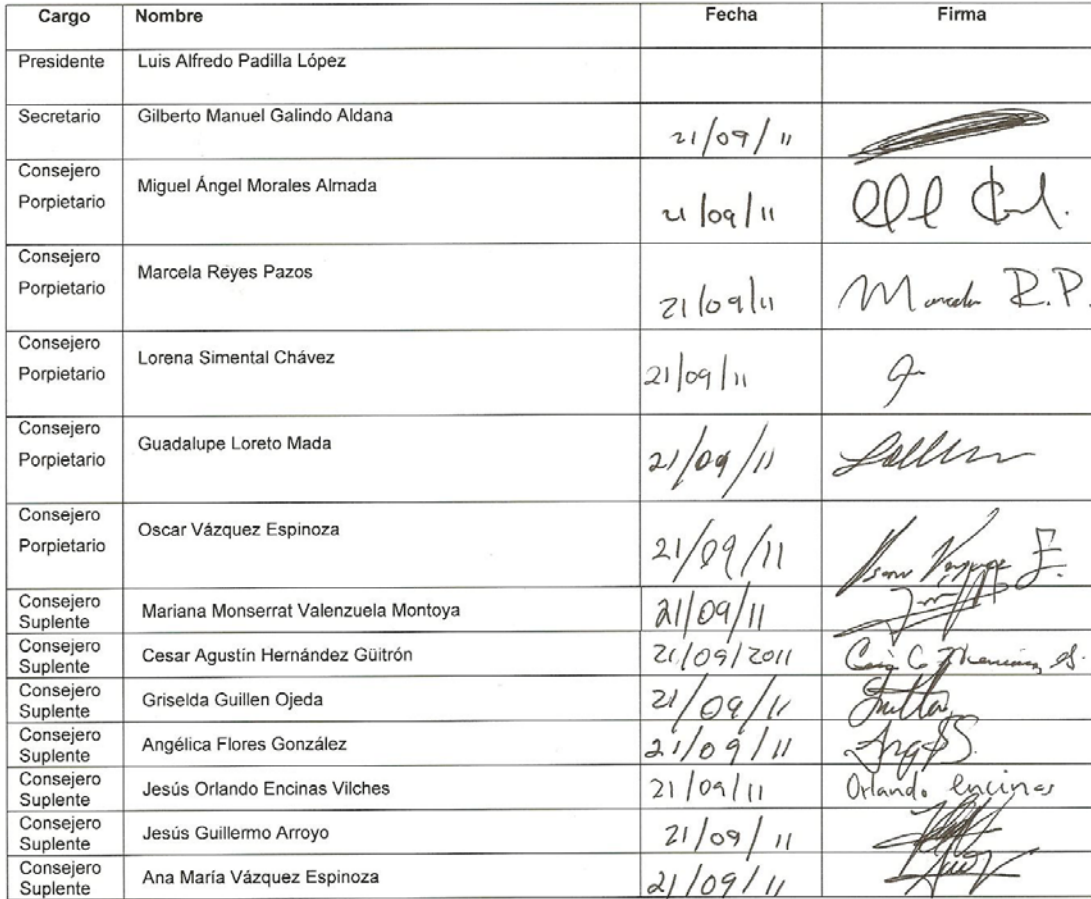 Cargo Nombre Fecha Firma
Presidente Luis Alfredo Padilla López
Secretario Gilberto Manuel Galindo Aldana 21/09/11
Consejero
Porpietario Miguel Ángel Morales Almada 21/09/11
Consejero
Porpietario Marcela Reyes Pazos 21/09/11 Marcela R.P.
Consejero
Porpietario Lorena Simental Chávez 21/09/11
Consejero
Porpietario Guadalupe Loreto Mada 21/09/11
Consejero
Porpietario Oscar Vázquez Espinoza 21/09/11 Oscar Vázquez E.
Consejero
Suplente Mariana Monserrat Valenzuela Montoya 21/09/11
Consejero
Suplente Cesar Agustín Hernández Güitrón 21/09/2011
Consejero
Suplente Griselda Guillen Ojeda 21/09/11
Consejero
Suplente Angélica Flores González 21/09/11
Consejero
Suplente Jesús Orlando Encinas Vilches 21/09/11 Orlando encinas
Consejero
Suplente Jesús Guillermo Arroyo 21/09/11
Consejero
Suplente Ana María Vázquez Espinoza 21/09/11